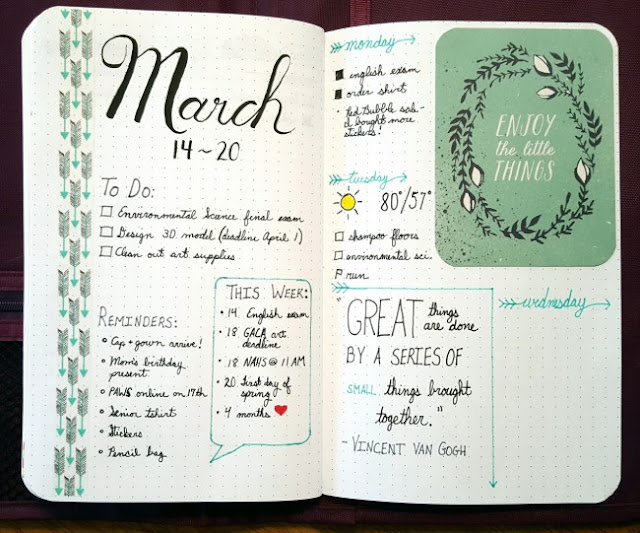 March
14~20
To Do:
Environmental Science final exam
Design 3D model (deadline April 1)
Clean out art supplies
REMINDERS:
Cap + gown arrive!
Mom's birthday
present
PAWS online on 17th
Senior tshirt
Stickers
Pencil bag
THIS WEEK:
14 English exam
18 GACA art
deadline
18 NAHS @ 11 AM
20 First day of
spring
4 months
monday
english exam
order shirt
Red Bubble sale
I bought more
stickers!
tuesday
80°/57°
shampoo floors
environmental sci.
run
ENJOY
the little
THINGS
wednesday
"GREAT things
are done
BY A SERIES OF
SMALL things brought
together."
- VINCENT VAN GOGH